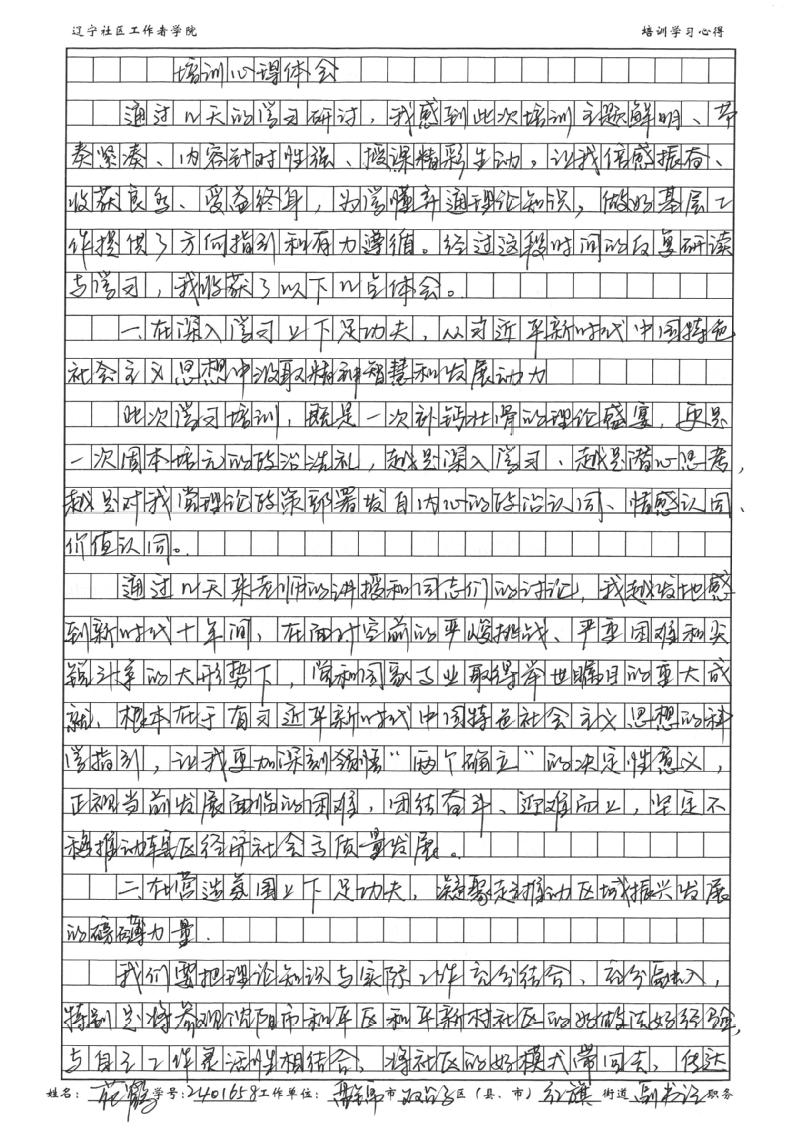 辽宁社区工作者学院 培训学习心得
培训心得体会
通过几天的学习研讨，我感到此次培训主题鲜明、节
奏紧凑、内容针对性强、授课精彩生动，让我倍感振奋、
收获良多、受益终身，为学懂弄通理论知识，做好基层工
作提供了方向指引和有力遵循。经过这段时间的反复研读
与学习，我收获了以下几点体会。
一、在深入学习上下足功夫，从习近平新时代中国特色
社会主义思想中汲取精神智慧和发展动力
此次学习培训，既是一次补钙壮骨的理论盛宴，更是
一次固本培元的政治洗礼，越是深入学习、越是潜心思考，
越是对我党理论政策部署发自内心的政治认同、情感认同、
价值认同。
通过几天朱老师的讲授和同志们的讨论，我越发地感
到新时代十年间，在面对空前的严峻挑战、严重困难和尖
锐斗争的大形势下，党和国家事业取得举世瞩目的重大成
就，根本在于有习近平新时代中国特色社会主义思想的科
学指引，让我更加深刻领悟“两个确立”的决定性意义，
正视当前发展面临的困难，团结奋斗、迎难而上，坚定不
移推动辖区经济社会高质量发展。
二、在营造氛围上下足功夫，凝聚走对推动区域振兴发展
的磅礴力量.
我们要把理论知识与实际工作充分结合、充分融入，
特别是将参观沈阳市和平区和平新村社区的好做法好经验，
与自己工作灵活性相结合，将社区的好模式带回去，传达
姓名： 学号:2401658工作单位： 盘锦市双台子区（县、市）红旗街道副书记职务